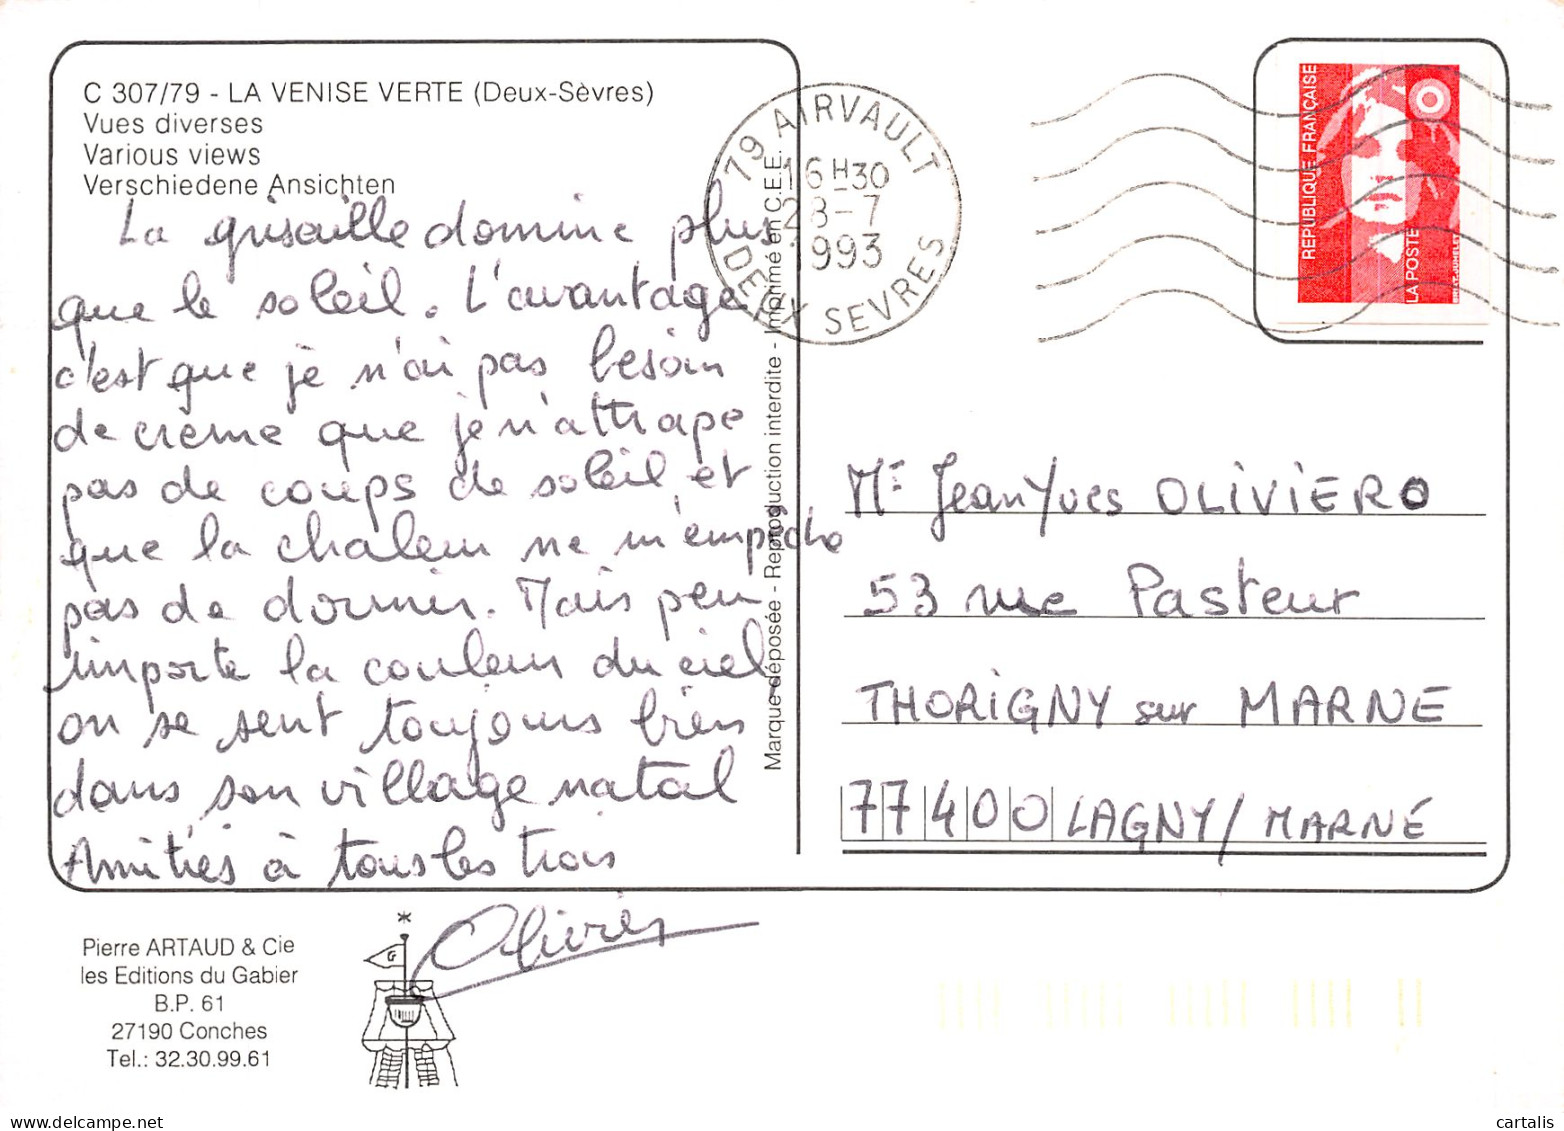 C 307/79 - LA VENISE VERTE (Deux-Sèvres)
Vues diverses
Various views
Verschiedene Ansichten
La grisaille domine plus
que le soleil. L'avantage
c'est que je n'ai pas besoin
de crème que je n'attrape
pas de coups de soleil, et
que la chaleur ne m'empêche
pas de dormir. Mais peu
importe la couleur du ciel,
on se sent toujours bien
dans son village natal
Amitiés à tous les trois
Olivier
Pierre ARTAUD & Cie
les Editions du Gabier
B.P. 61
27190 Conches
Tel.: 32.30.99.61
G
Marque déposée - Reproduction interdite - Imprimé en C.E.E.
79 AIRVAULT
16H30
28-7
1993
DEUX SEVRES
REPUBLIQUE FRANÇAISE
LA POSTE
Mr Jean Yves OLIVIERO
53 rue Pasteur
THORIGNY sur MARNE
77400 LAGNY / MARNE
cartalis